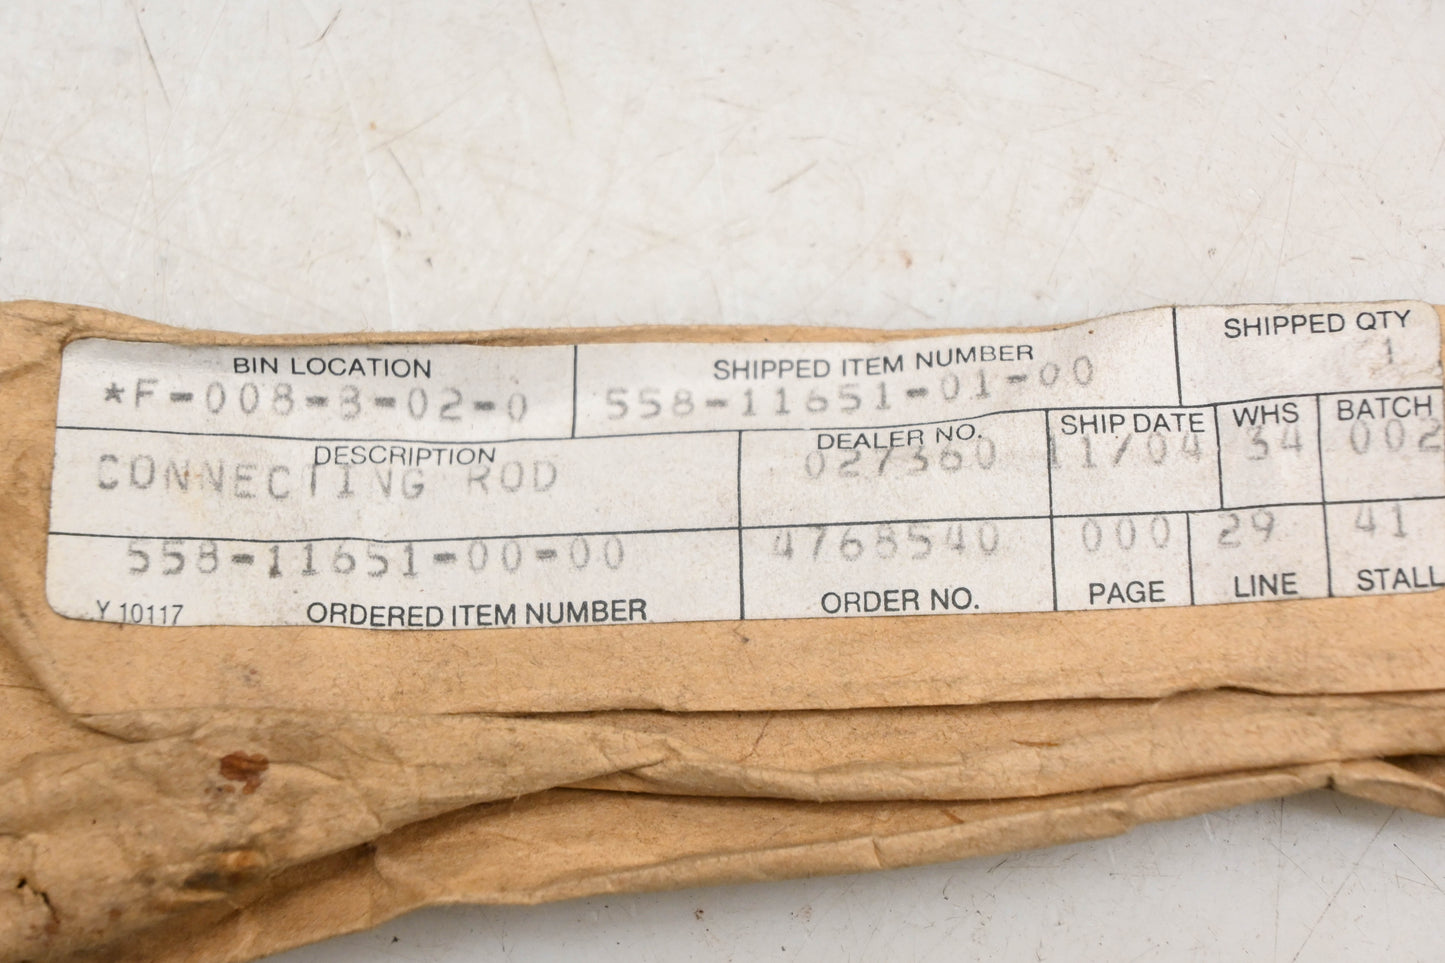 BIN LOCATION SHIPPED ITEM NUMBER SHIPPED QTY
*F-008-3-02-0 558-11651-01-00 1
DESCRIPTION DEALER NO. SHIP DATE WHS BATCH
CONNECTING ROD 027360 11/04 34 002
558-11651-00-00 4768540 000 29 41
Y 10117 ORDERED ITEM NUMBER ORDER NO. PAGE LINE STALL